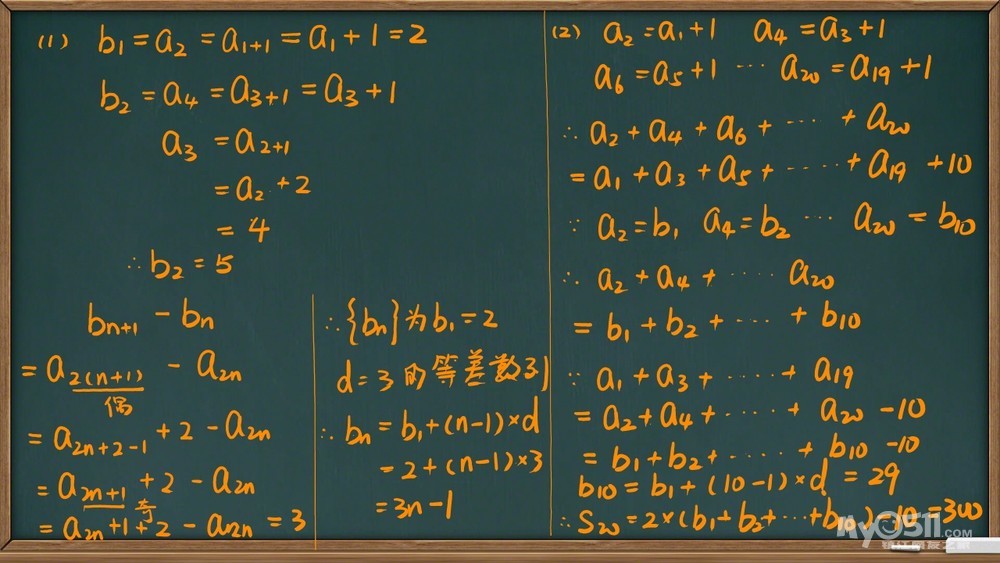 (1) b₁=a₂=a₁₊₁=a₁+1=2
b₂=a₄=a₃₊₁=a₃+1
a₃=a₂₊₁
=a₂+2
=4
∴b₂=5
bₙ₊₁-bₙ
=a₂₍ₙ₊₁₎-a₂ₙ
偶
=a₂ₙ₊₂₋₁+2-a₂ₙ
=a₂ₙ₊₁+2-a₂ₙ
奇
=a₂ₙ+1+2-a₂ₙ=3
∴{bₙ}为b₁=2
d=3的等差数列
∴bₙ=b₁+(n-1)×d
=2+(n-1)×3
=3n-1
(2) a₂=a₁+1 a₄=a₃+1
a₆=a₅+1 ··· a₂₀=a₁₉+1
∴a₂+a₄+a₆+·····+a₂₀
=a₁+a₃+a₅+······+a₁₉+10
∵a₂=b₁ a₄=b₂ ··· a₂₀=b₁₀
∴a₂+a₄+·····a₂₀
=b₁+b₂+····+b₁₀
∵a₁+a₃+·····+a₁₉
=a₂+a₄+·····+a₂₀-10
=b₁+b₂+·····+b₁₀-10
b₁₀=b₁+(10-1)×d=29
∴S₂₀=2×(b₁+b₂+···+b₁₀)-10=300
My0511.com